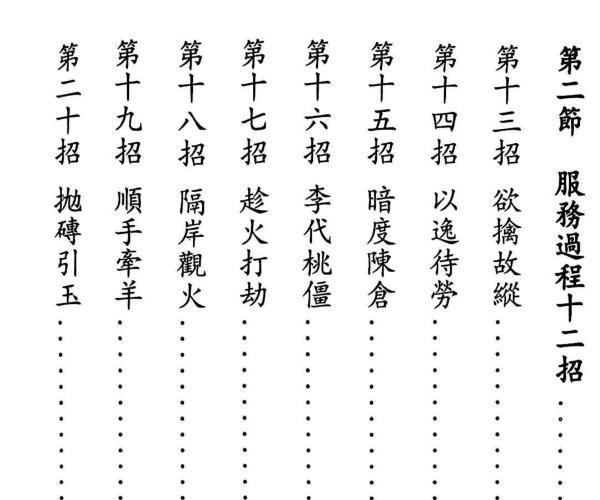 第二節　服務過程十二招
第十三招　欲擒故縱
第十四招　以逸待勞
第十五招　暗度陳倉
第十六招　李代桃僵
第十七招　趁火打劫
第十八招　隔岸觀火
第十九招　順手牽羊
第二十招　拋磚引玉